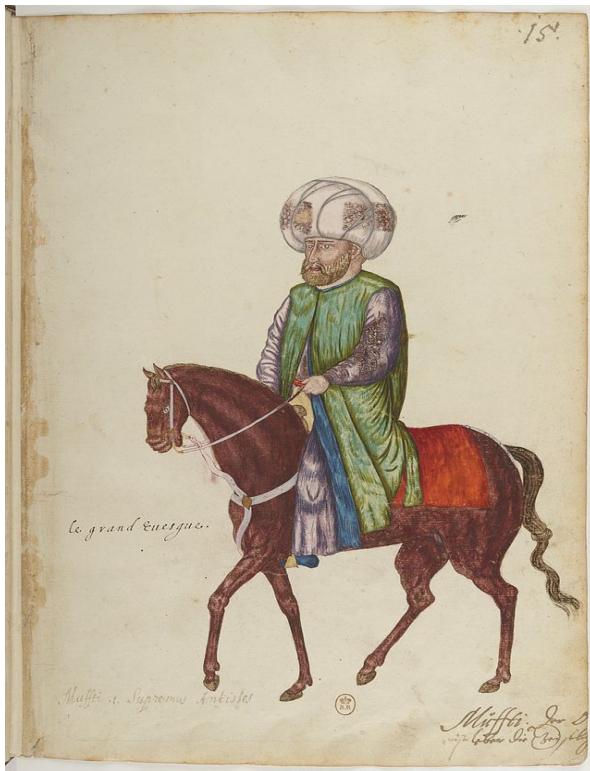 15.
le grand euesque.
Muffti .i. Supremus Antistes
Müffti. Der
leben die